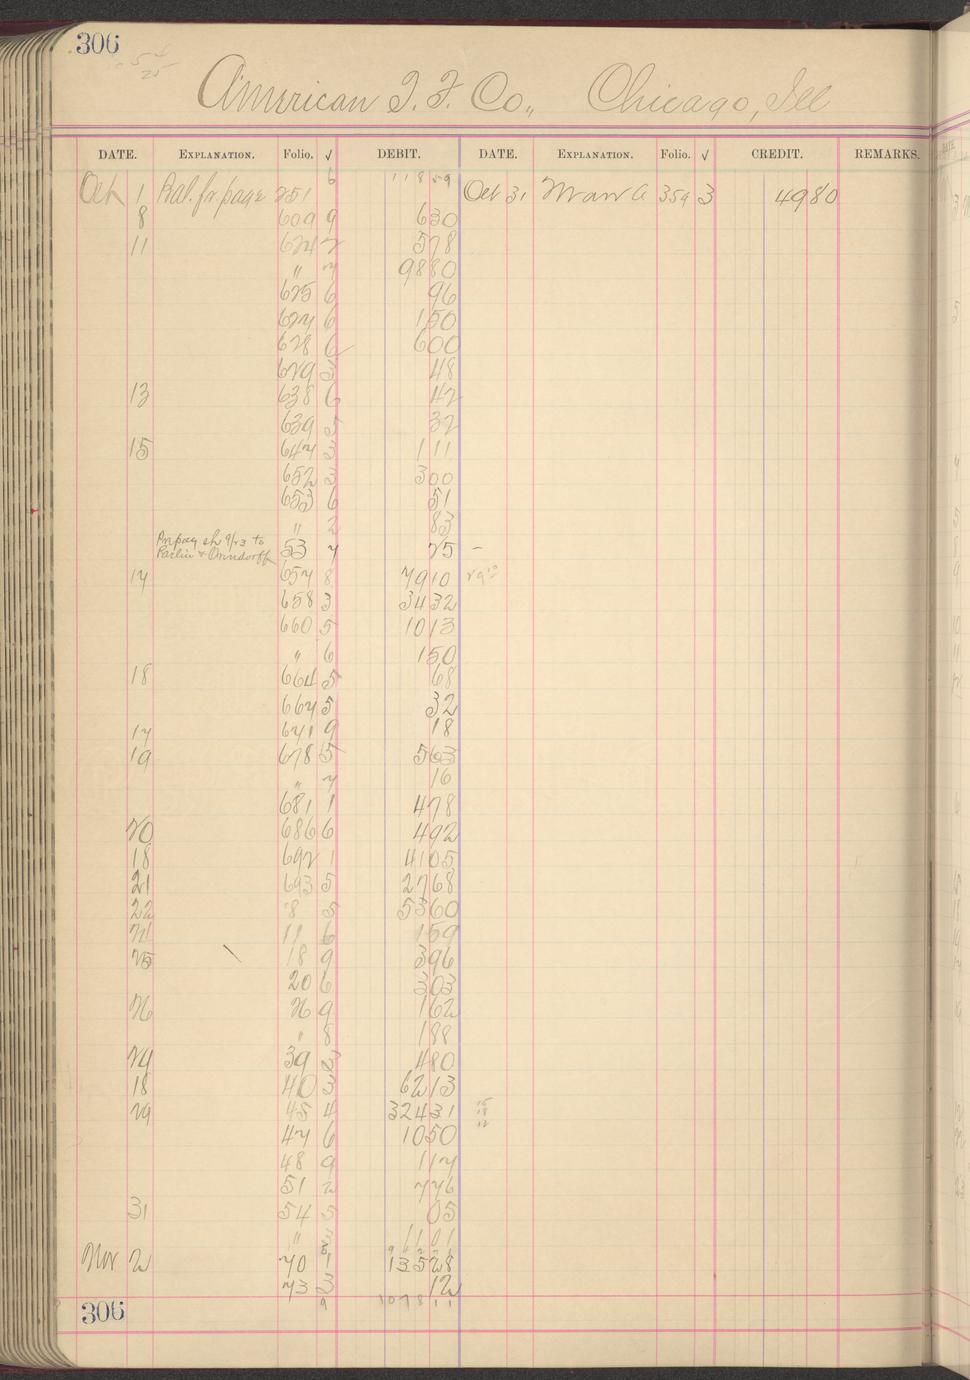 306
American I. F. Co., Chicago, Ill
DATE. EXPLANATION. Folio. √ DEBIT. DATE. EXPLANATION. Folio. √ CREDIT. REMARKS.
Oct 1 Bal. fr. page 251 6 118 59 Oct 31 359 3 49 80
8 609 9 6 30
11 624 2 5 78
" 7 98 80
625 6 96
627 6 1 50
628 6 6 00
629 3 48
13 638 6 42
639 5 32
15 647 3 1 11
652 3 3 00
653 6 51
" 2 83
Prepay sh 9/23 to
Parlin & Orendorff 53 7 25 –
17 657 8 79 10
658 3 34 32
660 5 10 13
" 6 1 50
18 664 5 68
667 5 32
17 671 9 18
19 678 5 5 63
" 7 16
681 1 4 78
20 686 6 4 92
18 692 1 41 05
21 693 5 27 68
22 8 5 53 60
24 11 6 1 59
25 18 9 3 96
20 6 3 03
26 26 9 1 62
" 8 1 88
27 39 2 4 80
18 40 3 62 13
29 45 4 324 31
47 6 10 50
48 9 1 17
51 2 7 76
31 54 5 05
" 3 11 01
Nov 2 70 1 135 28
73 3 12
9 1078 11
306